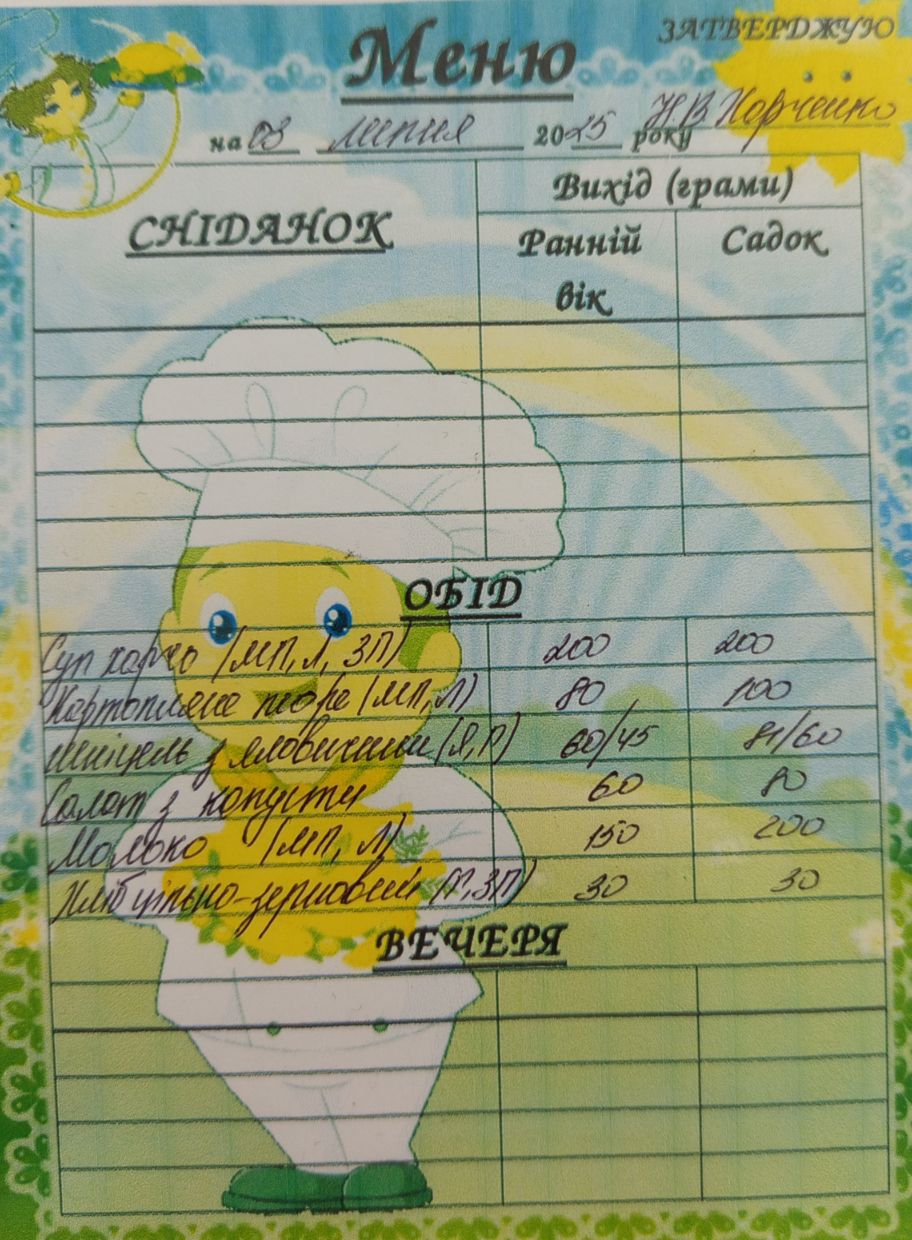 ЗАТВЕРДЖУЮ
Меню
на 03 липня 2025 року Н.В.Корченко
СНІДАНОК
Вихід (грами)
Ранній вік
Садок
ОБІД
Суп харчо (МП, Л, ЗП) 200 200
Картопляне пюре (МП, Л) 80 100
Шніцель з яловичини (Я, Р) 60/45 81/60
Салат з капусти 60 80
Молоко (МП, Л) 150 200
Хліб цільно-зерновий (Г, ЗП) 30 30
ВЕЧЕРЯ